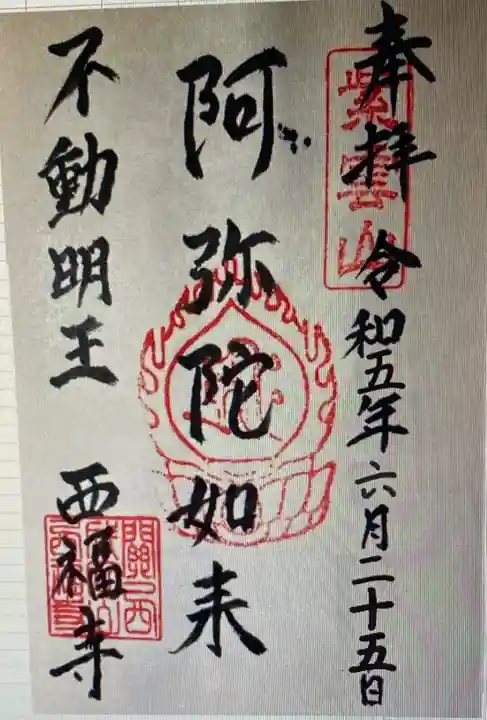 奉拝
令和五年六月二十五日
紫雲山
阿弥陀如来
不動明王
西福寺